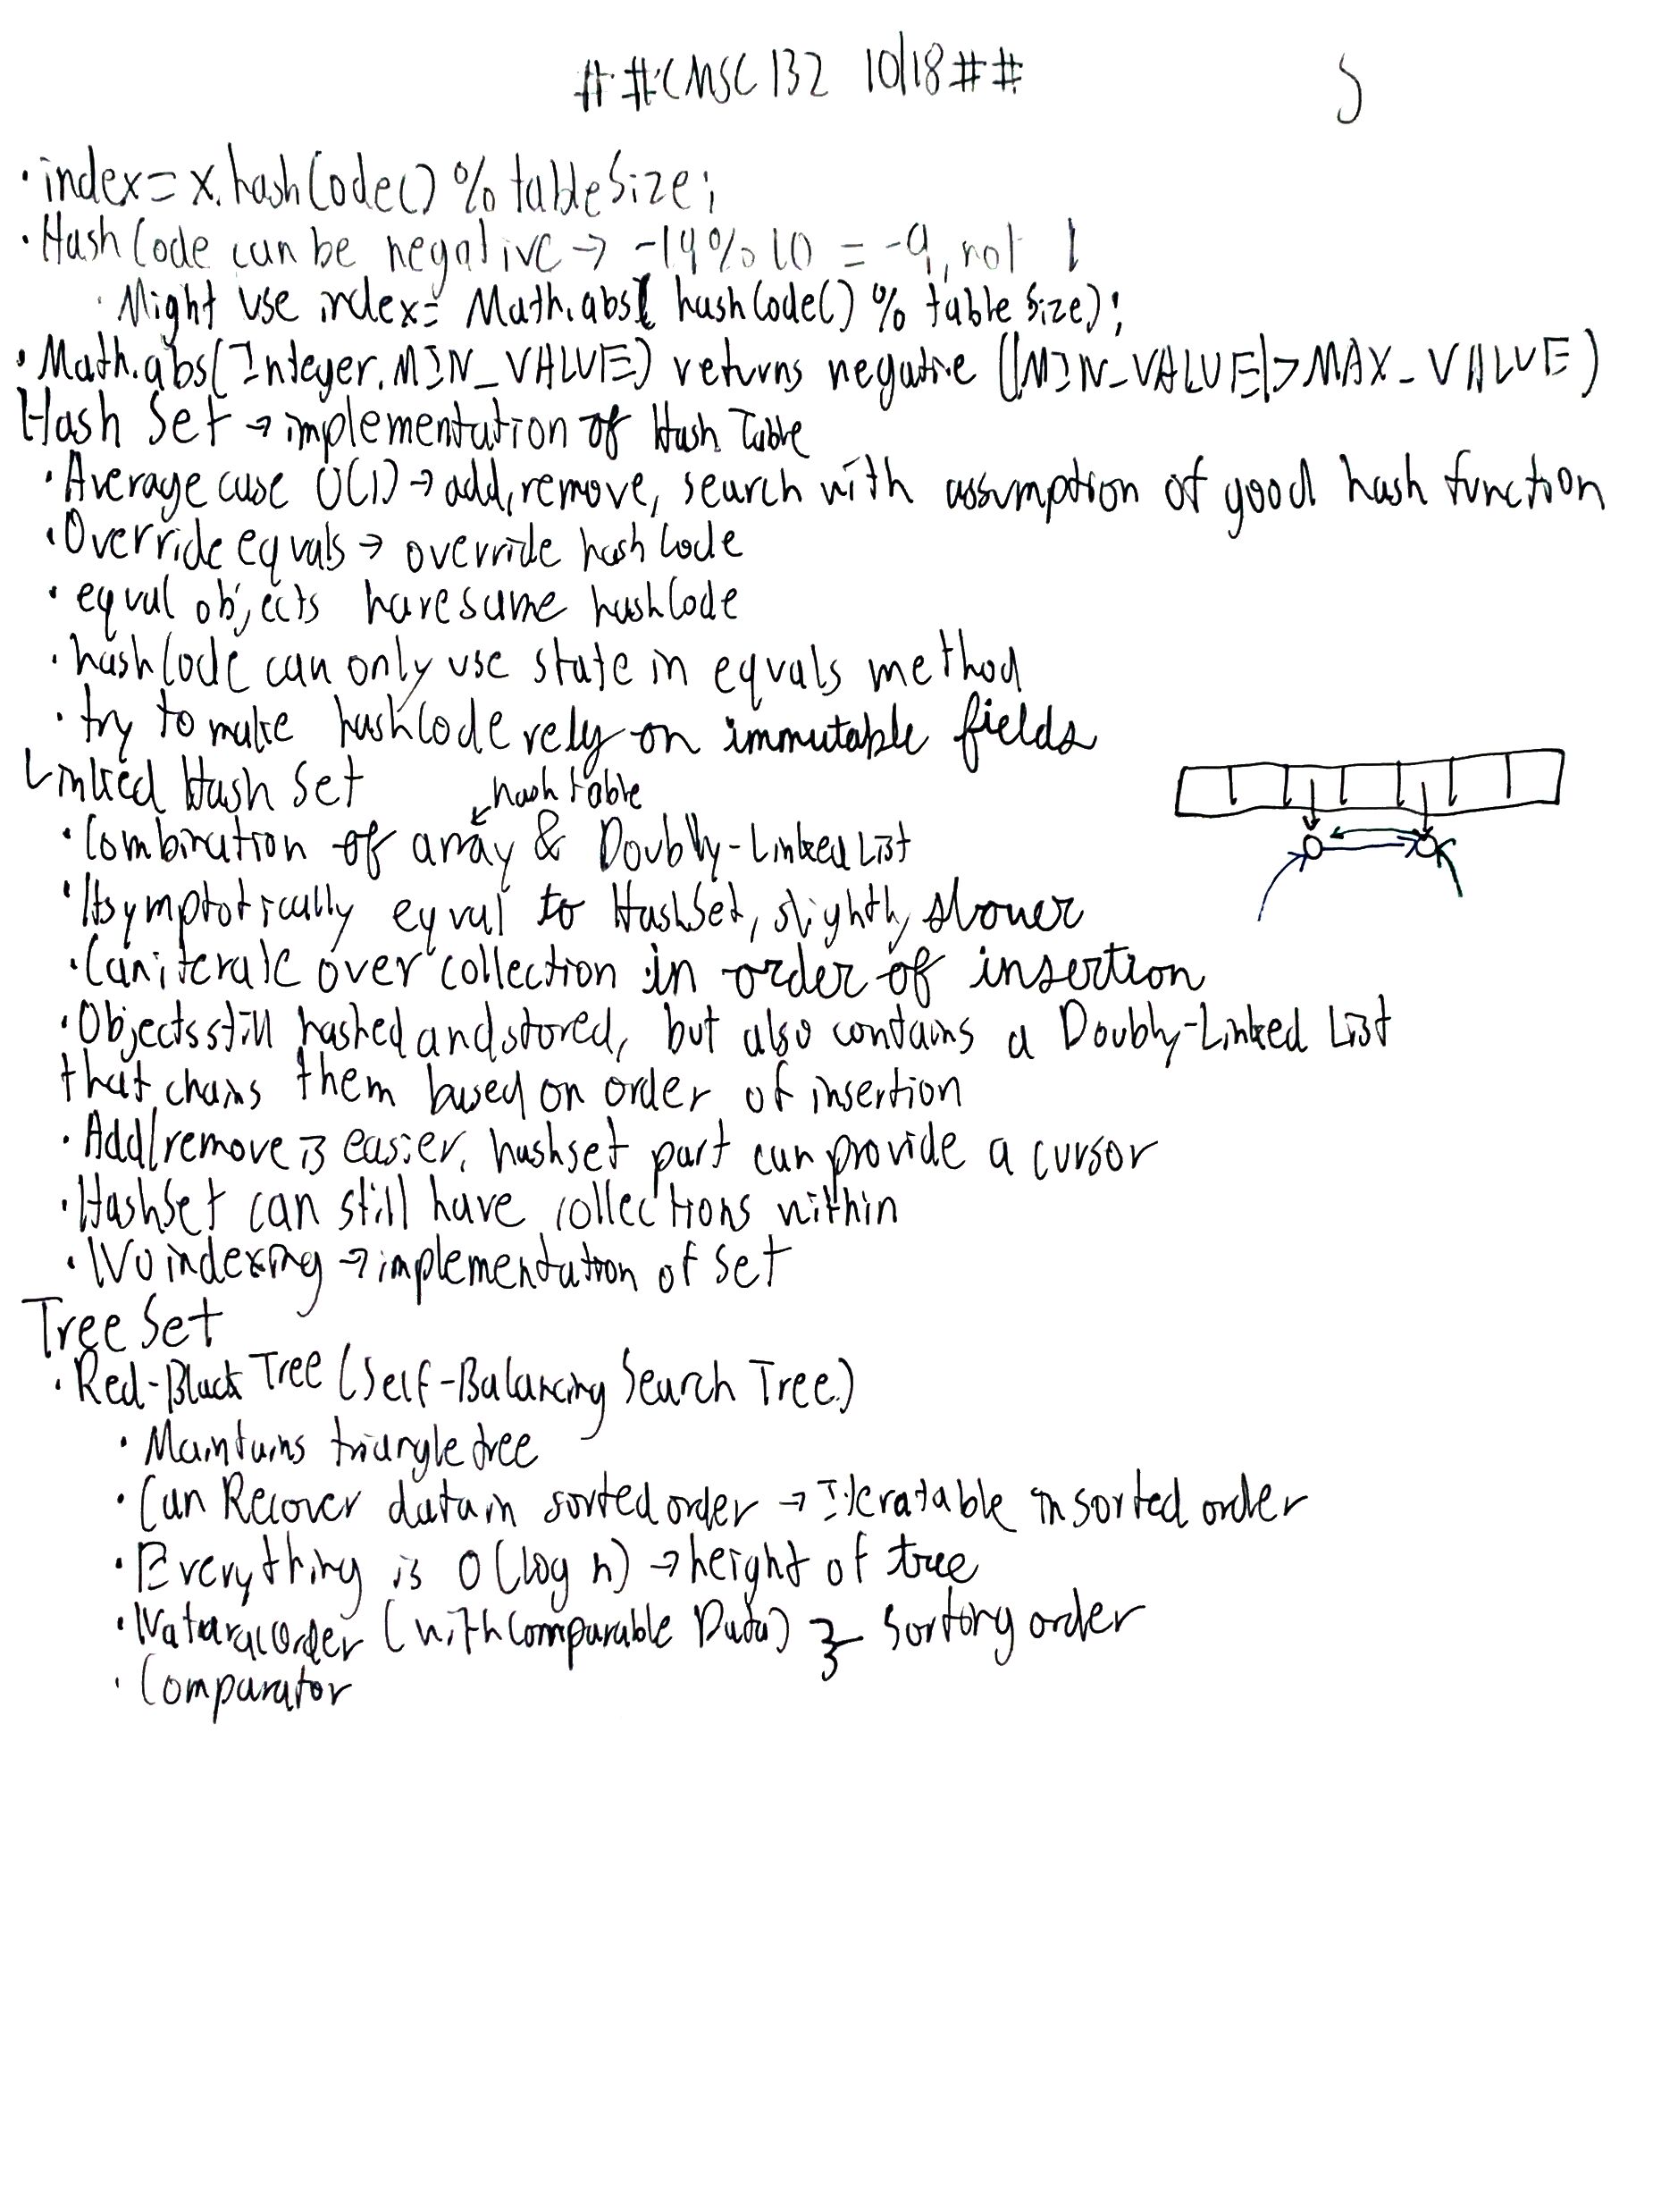 ##CMSC 132 10/18##
5
· index = x.hashCode() % tableSize;
· HashCode can be negative → -19 % 10 = -9, not 1
· Might use index = Math.abs( hashCode() % tableSize);
· Math.abs(Integer.MIN_VALUE) returns negative (|MIN_VALUE|>MAX_VALUE)
Hash Set → implementation of Hash Table
· Average case O(1) → add, remove, search with assumption of good hash function
· Override equals → override hashCode
· equal objects have same hashCode
· hashCode can only use state in equals method
· try to make hashCode rely on immutable fields
Linked Hash Set
hash table
· Combination of array & Doubly-Linked List
· Asymptotically equal to HashSet, slightly slower
· Can iterate over collection in order of insertion
· Objects still hashed and stored, but also contains a Doubly-Linked List
that chains them based on order of insertion
· Add/remove is easier, hashset part can provide a cursor
· HashSet can still have collections within
· No indexing → implementation of set
Tree Set
· Red-Black Tree (Self-Balancing Search Tree)
· Maintains triangle tree
· Can Recover data in sorted order → Iteratable in sorted order
· Everything is O(log n) → height of tree
· Natural Order (with Comparable Data) } Sorting order
· Comparator